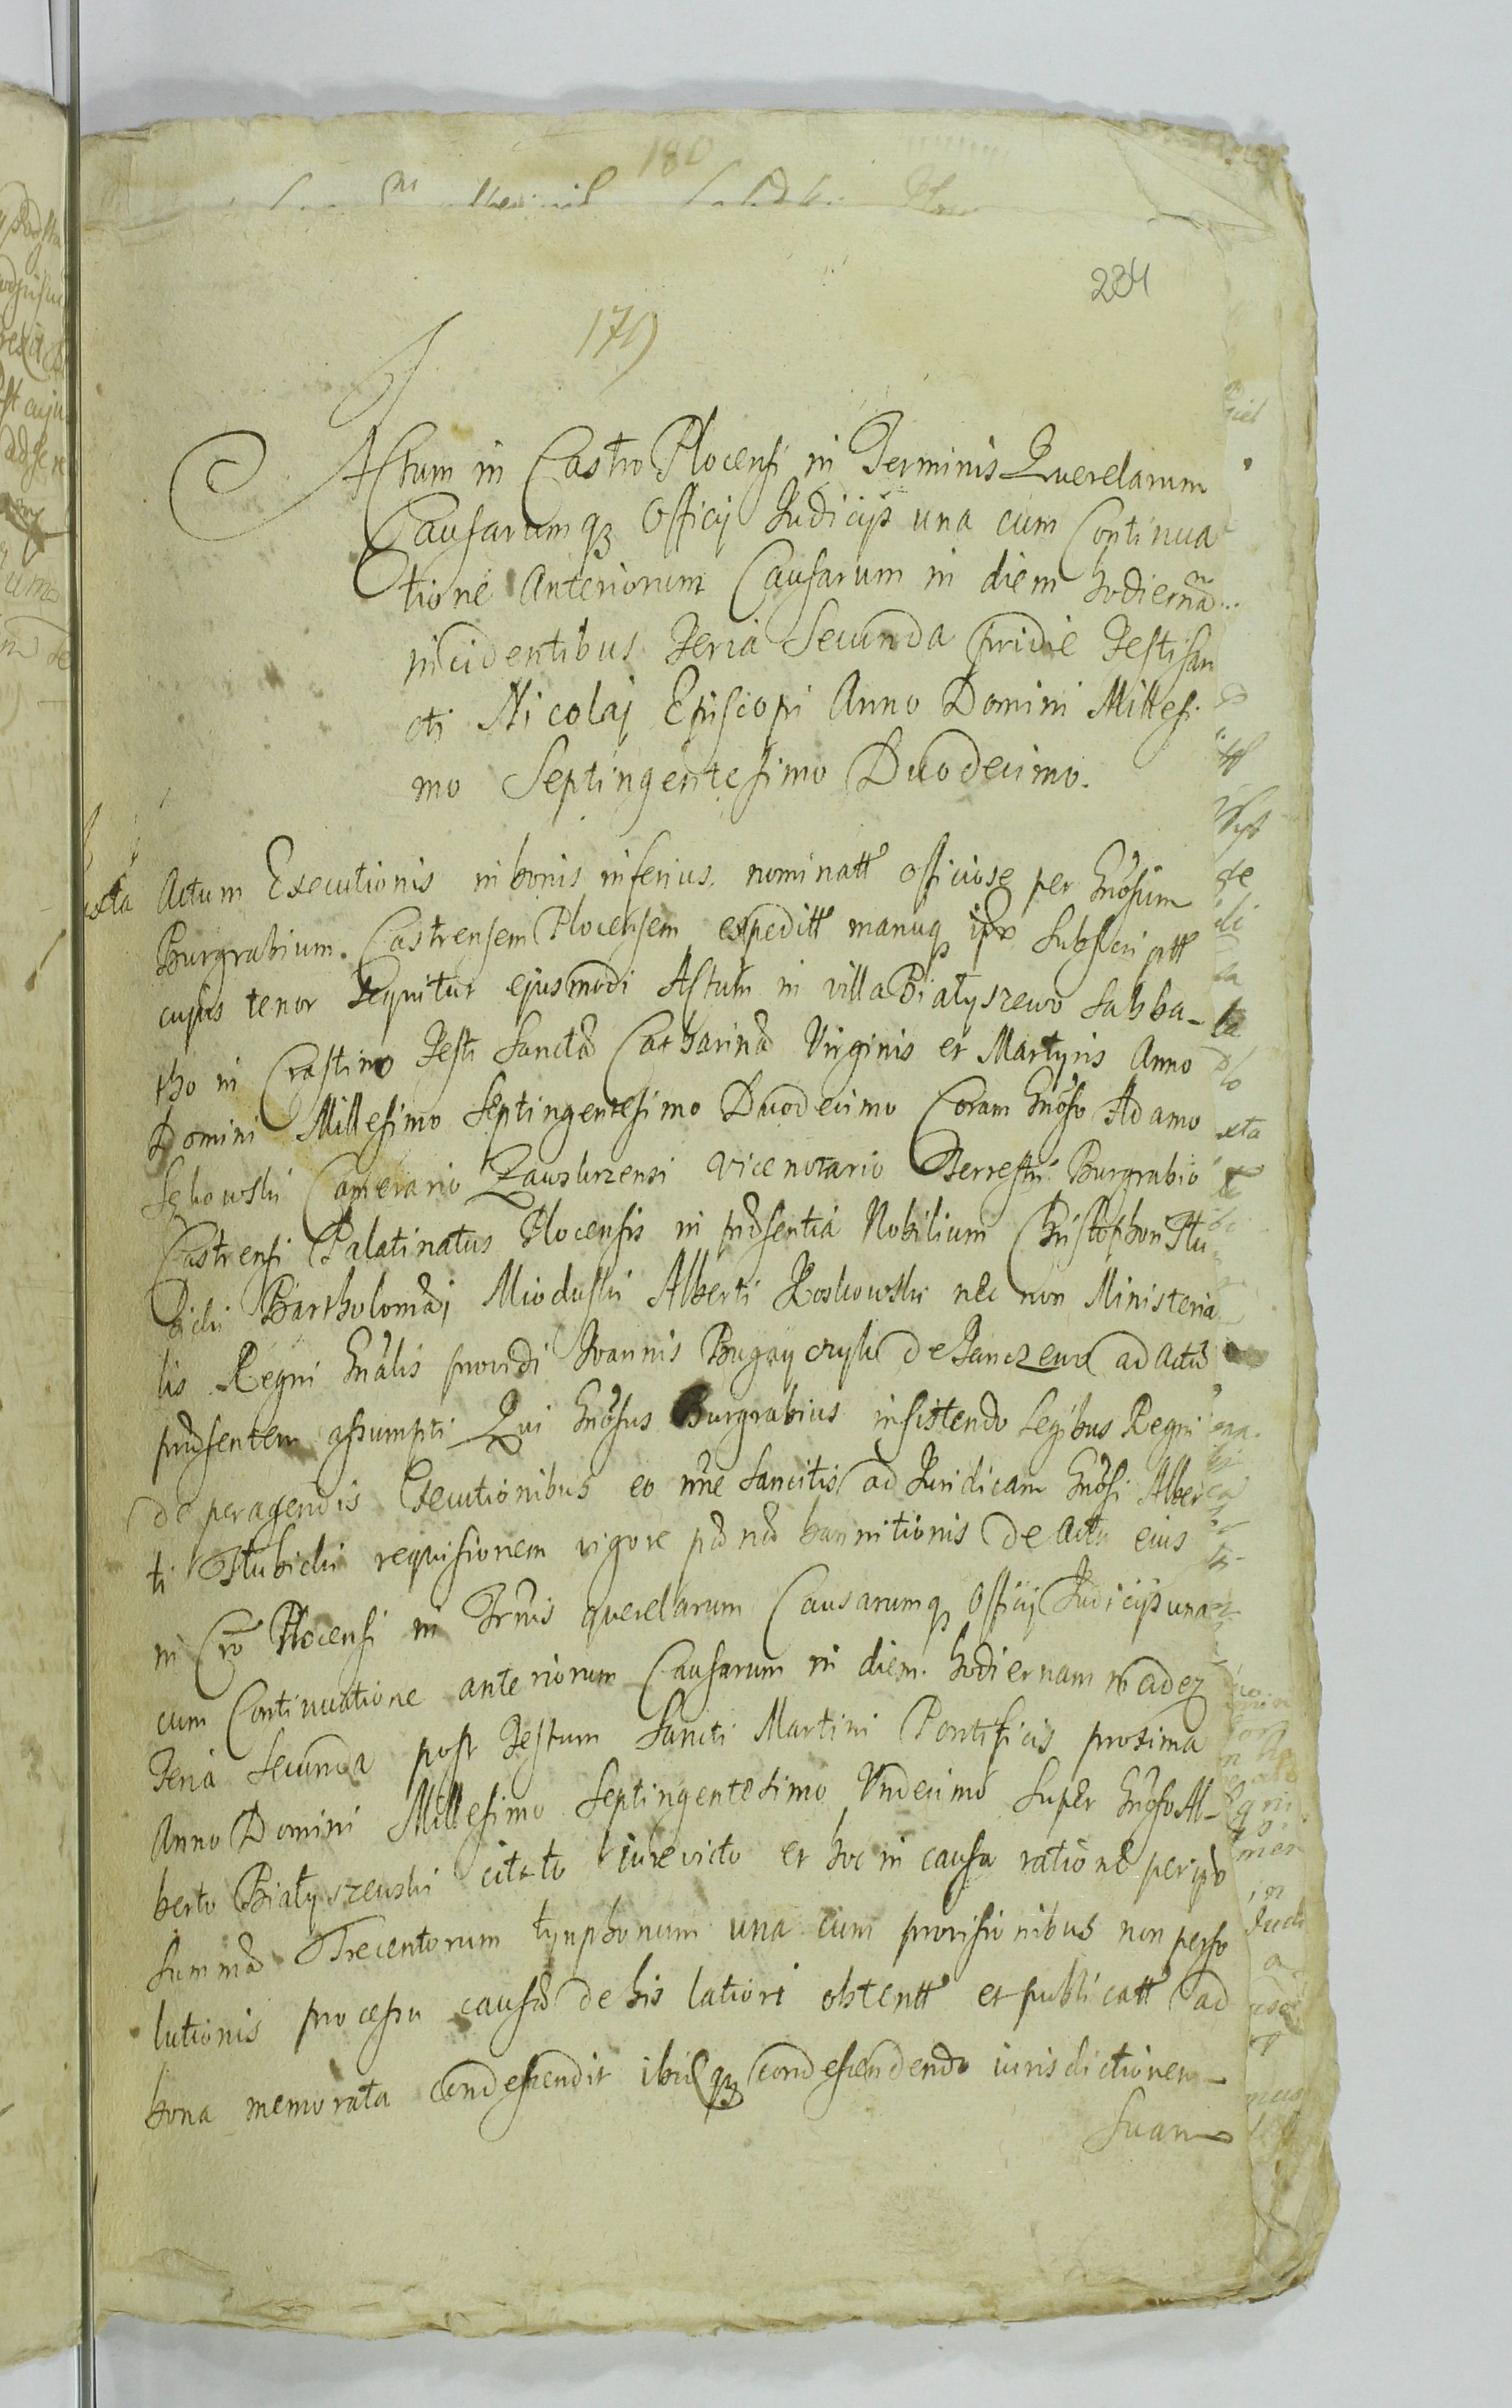 180
234
179
Actum in Castro Plocensi in Terminis Querelarum
Causarumq3 Officij Judicijs una cum Continua
tione Anteriorum Causarum in diem hodierna
incidentibus Feria Secunda pridie Festi San
cti Nicolaj Episcopi Anno Domini Millesi
mo Septingentesimo Duodecimo.
Actum Executionis in bonis inferius nominatt officiose per Gnosum
Burgrabium Castrensem Plocensem expeditt manuq3 ipso subscriptt
cujus tenor sequitur ejusmodi Actum in villa Białyszewo Sabba-
tho in Crastino Festi Sanctæ Catharinæ Virginis et Martyris Anno
Domini Millesimo Septingentesimo Duodecimo Coram Gnoso Adamo
Camerario Zawskrzensi Vicenotario Terrestri Burgrabio
Castrensi Palatinatus Plocensis in præsentia Nobilium Christophori Flu
bicki Bartholomæj Mioduski Alberti Koskowski nec non Ministeria
lis Regni Gnalis providi Joannis de ad Actu
præsentem assumpti Qui Gnosus Burgrabius insistendo Legibus Regni
de peragendis Executionibus eo nne Sancitis ad Juridicam Gnosi Alber
ti Flubicki requisionem vigore pænæ bannitionis de Actu eius
in Cro Plocensi in Trnis querelarum Causarumq3 Officij Judicijs una
cum Continuatione anteriorum Causarum in diem hodiernam
Feria Secunda post Festum Sancti Martini Pontificis proxima
Anno Domini Millesimo Septingentesimo Undecimo Super Gnoso Al-
berto Białyszewski citato iurevicto et hoc in causa ratione per ipso
Summæ Trecentorum tynphonum una cum provisionibus non perso
lutionis processu causæ de his latiori obtentt et publicatt ad
bona memorata condescendit ibiq3 condescendendo iurisdictionem
Suam